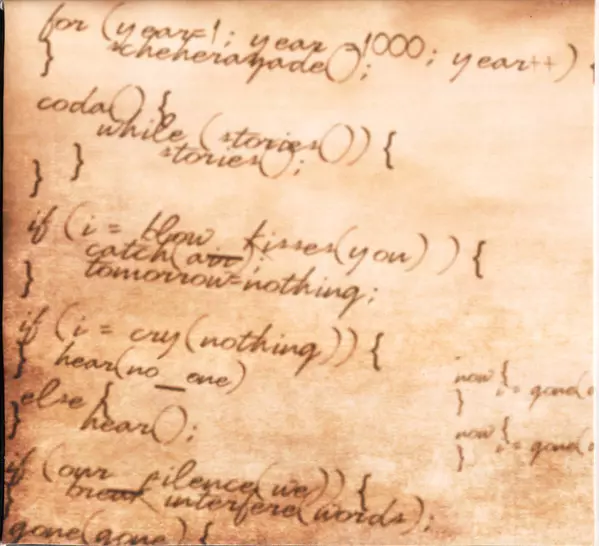 for (year=1; year 1000; year++) {
scheherazade();
}
coda() {
while (stories()) {
stories();
}
}
if (i = blow_kisses(you) ) {
catch(air);
tomorrow=nothing;
}
if (i = cry(nothing)) {
hear(no_one)
}
else {
hear();
}
if (our_silence(we)) {
break interfere(words);
}
gone(gone) {
now {
i = gone(
}
now {
i = gone(
}